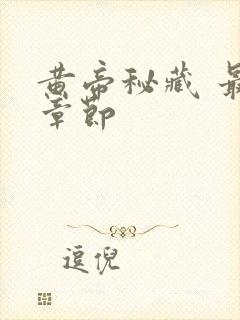 黄帝秘藏 最
章节
逗倪